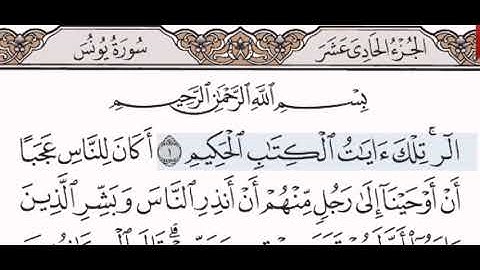 الجُزْءُ الحَادِى عَشَرَ
سُورَةُ يُونُسَ
بِسْمِ ٱللَّهِ ٱلرَّحْمَٰنِ ٱلرَّحِيمِ
الٓرۚ تِلْكَ ءَايَٰتُ ٱلْكِتَٰبِ ٱلْحَكِيمِ ١ أَكَانَ لِلنَّاسِ عَجَبًا
أَنْ أَوْحَيْنَآ إِلَىٰ رَجُلٍ مِّنْهُمْ أَنْ أَنذِرِ ٱلنَّاسَ وَبَشِّرِ ٱلَّذِينَ